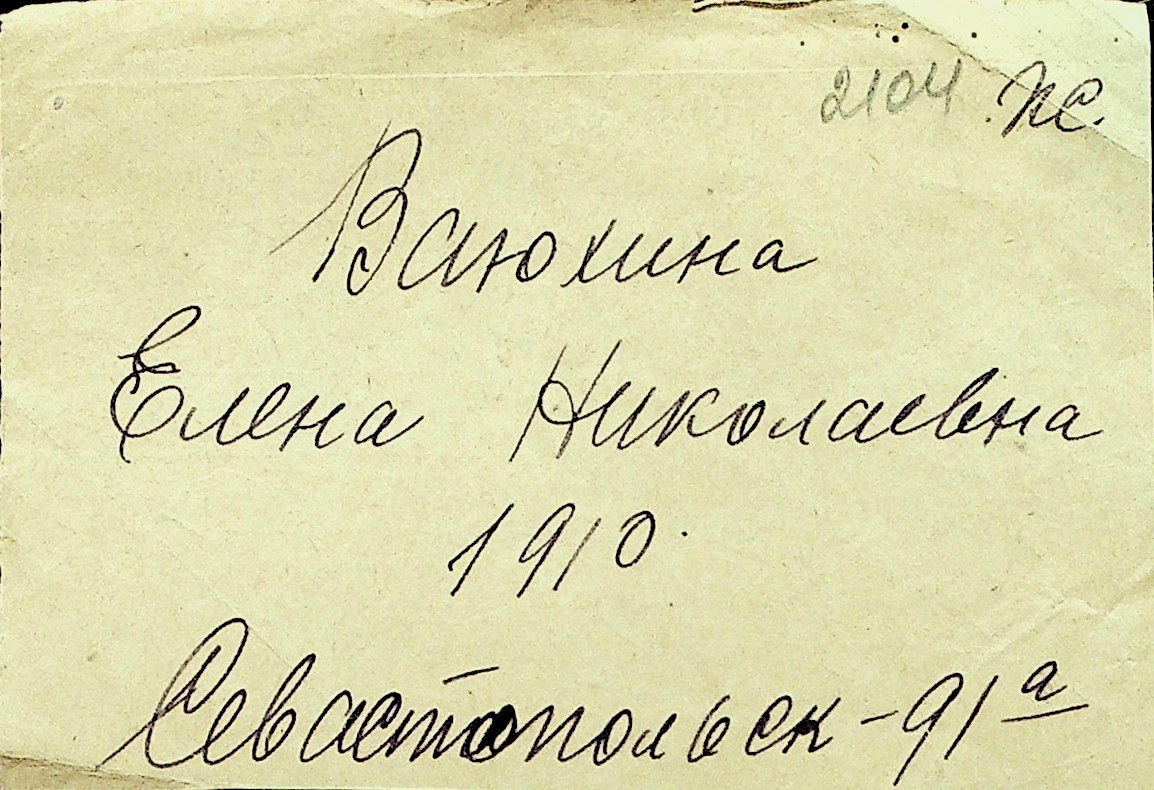 2104 пс.
Ваюхина
Елена Николаевна
1910.
Севастопольск - 91 а